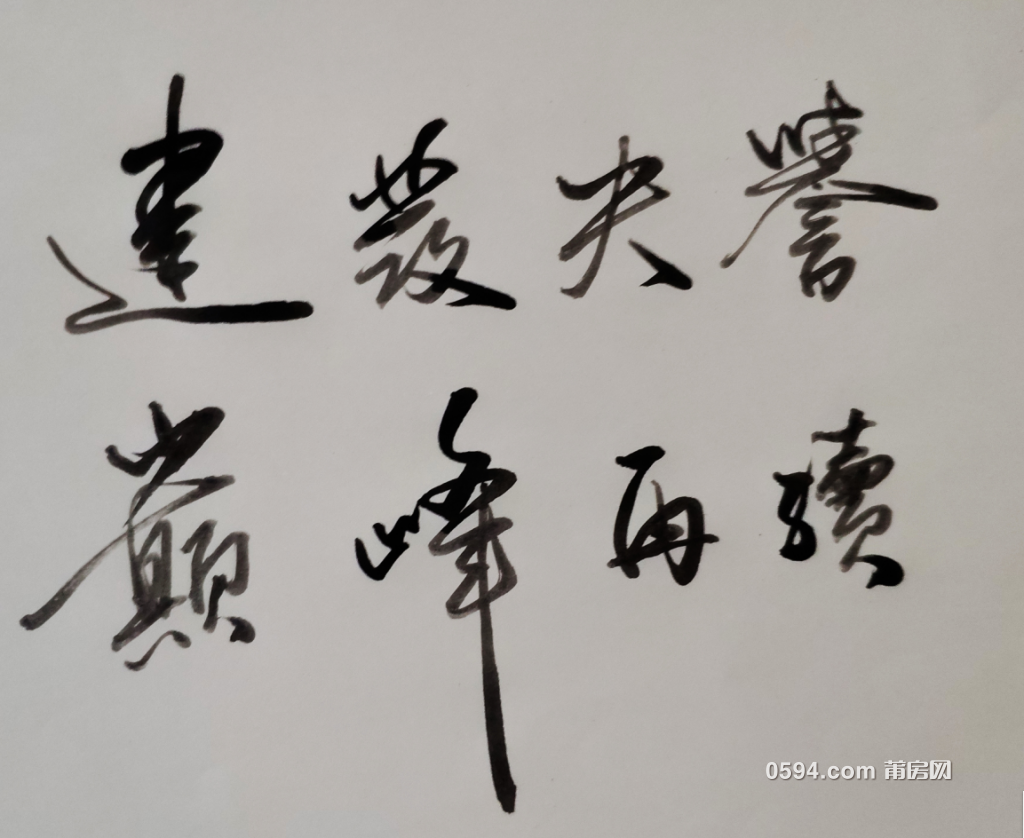 建發央譽
巔峰再續
0594.com 莆房网